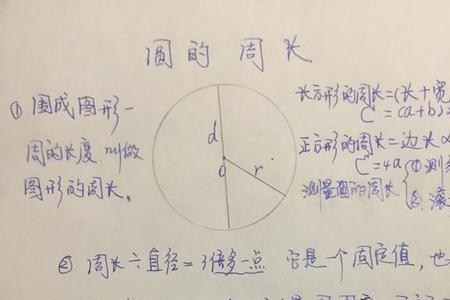 圆的周长
① 围成图形一
周的长度叫做
图形的周长。
d
r
o
长方形的周长=(长+宽
C=(a+b)
正方形的周长=边长×
C=4a
测量圆的周长
① 测
② 滚
② 周长÷直径=3倍多一点 它是一个固定值,也